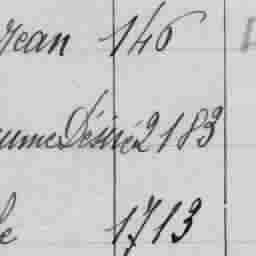 Jean 146
aume Désiré 2183
le 1713